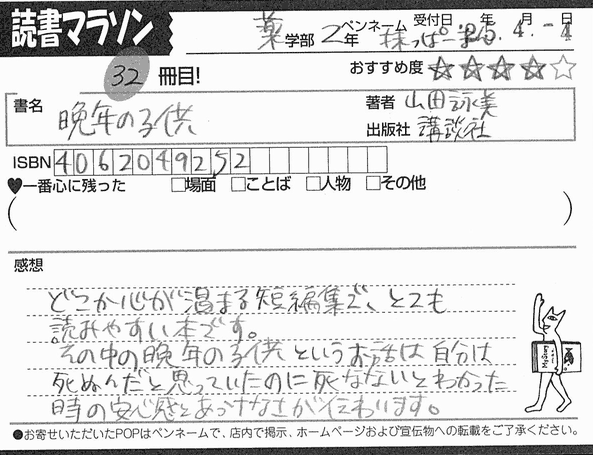 読書マラソン
薬学部 2年 ペンネーム 葉っぱ 受付日 年 月 日
25. 4. -4
32 冊目!
おすすめ度 ★★★★☆
書名 晩年の子供
著者 山田詠美
出版社 講談社
ISBN 4062049252
♥一番心に残った □場面 □ことば □人物 □その他
( )
感想
どこか心が温まる短編集で、とても
読みやすい本です。
その中の晩年の子供というお話は自分は
死ぬんだと思っていたのに死なないとわかった
時の安心感とあっけなさが伝わります。
●お寄せいただいたPOPはペンネームで、店内で掲示、ホームページおよび宣伝物への転載をご了承ください。